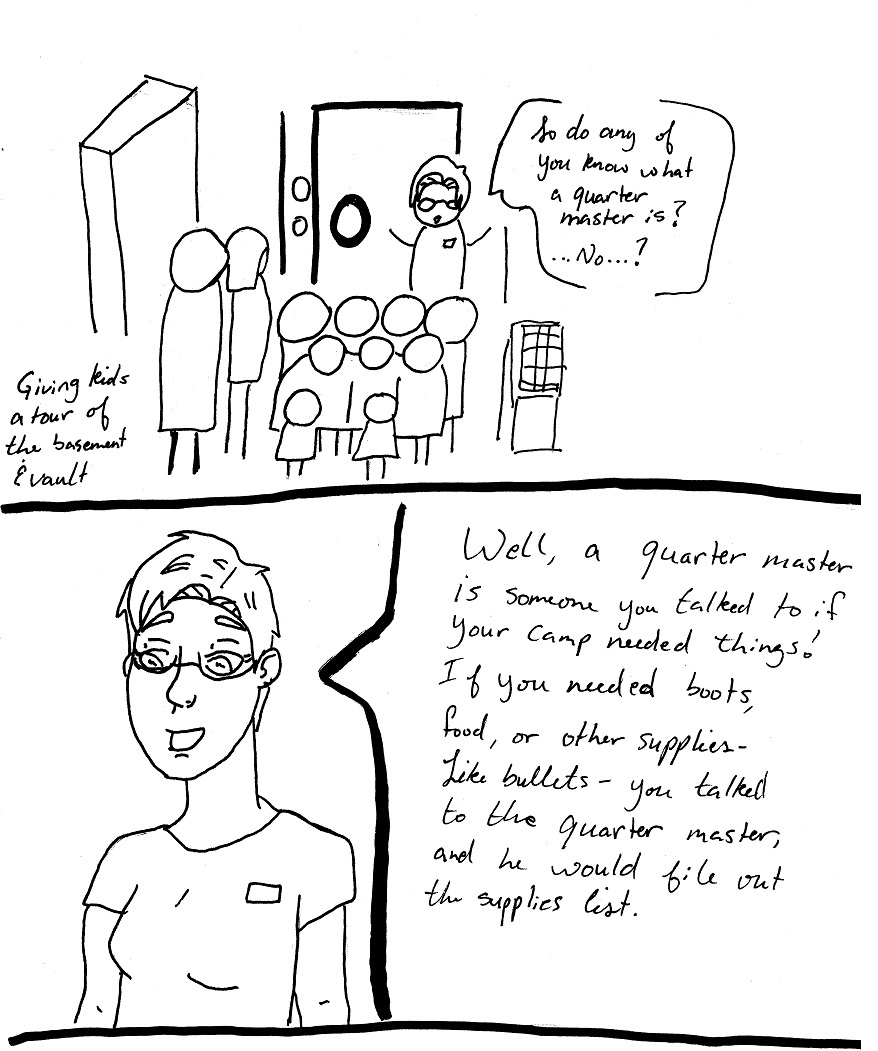 So do any of
you know what
a quarter
master is?
...No...?
Giving kids
a tour of
the basement
& vault
Well, a quarter master
is someone you talked to if
your camp needed things!
If you needed boots,
food, or other supplies-
Like bullets- you talked
to the quarter master,
and he would file out
the supplies list.